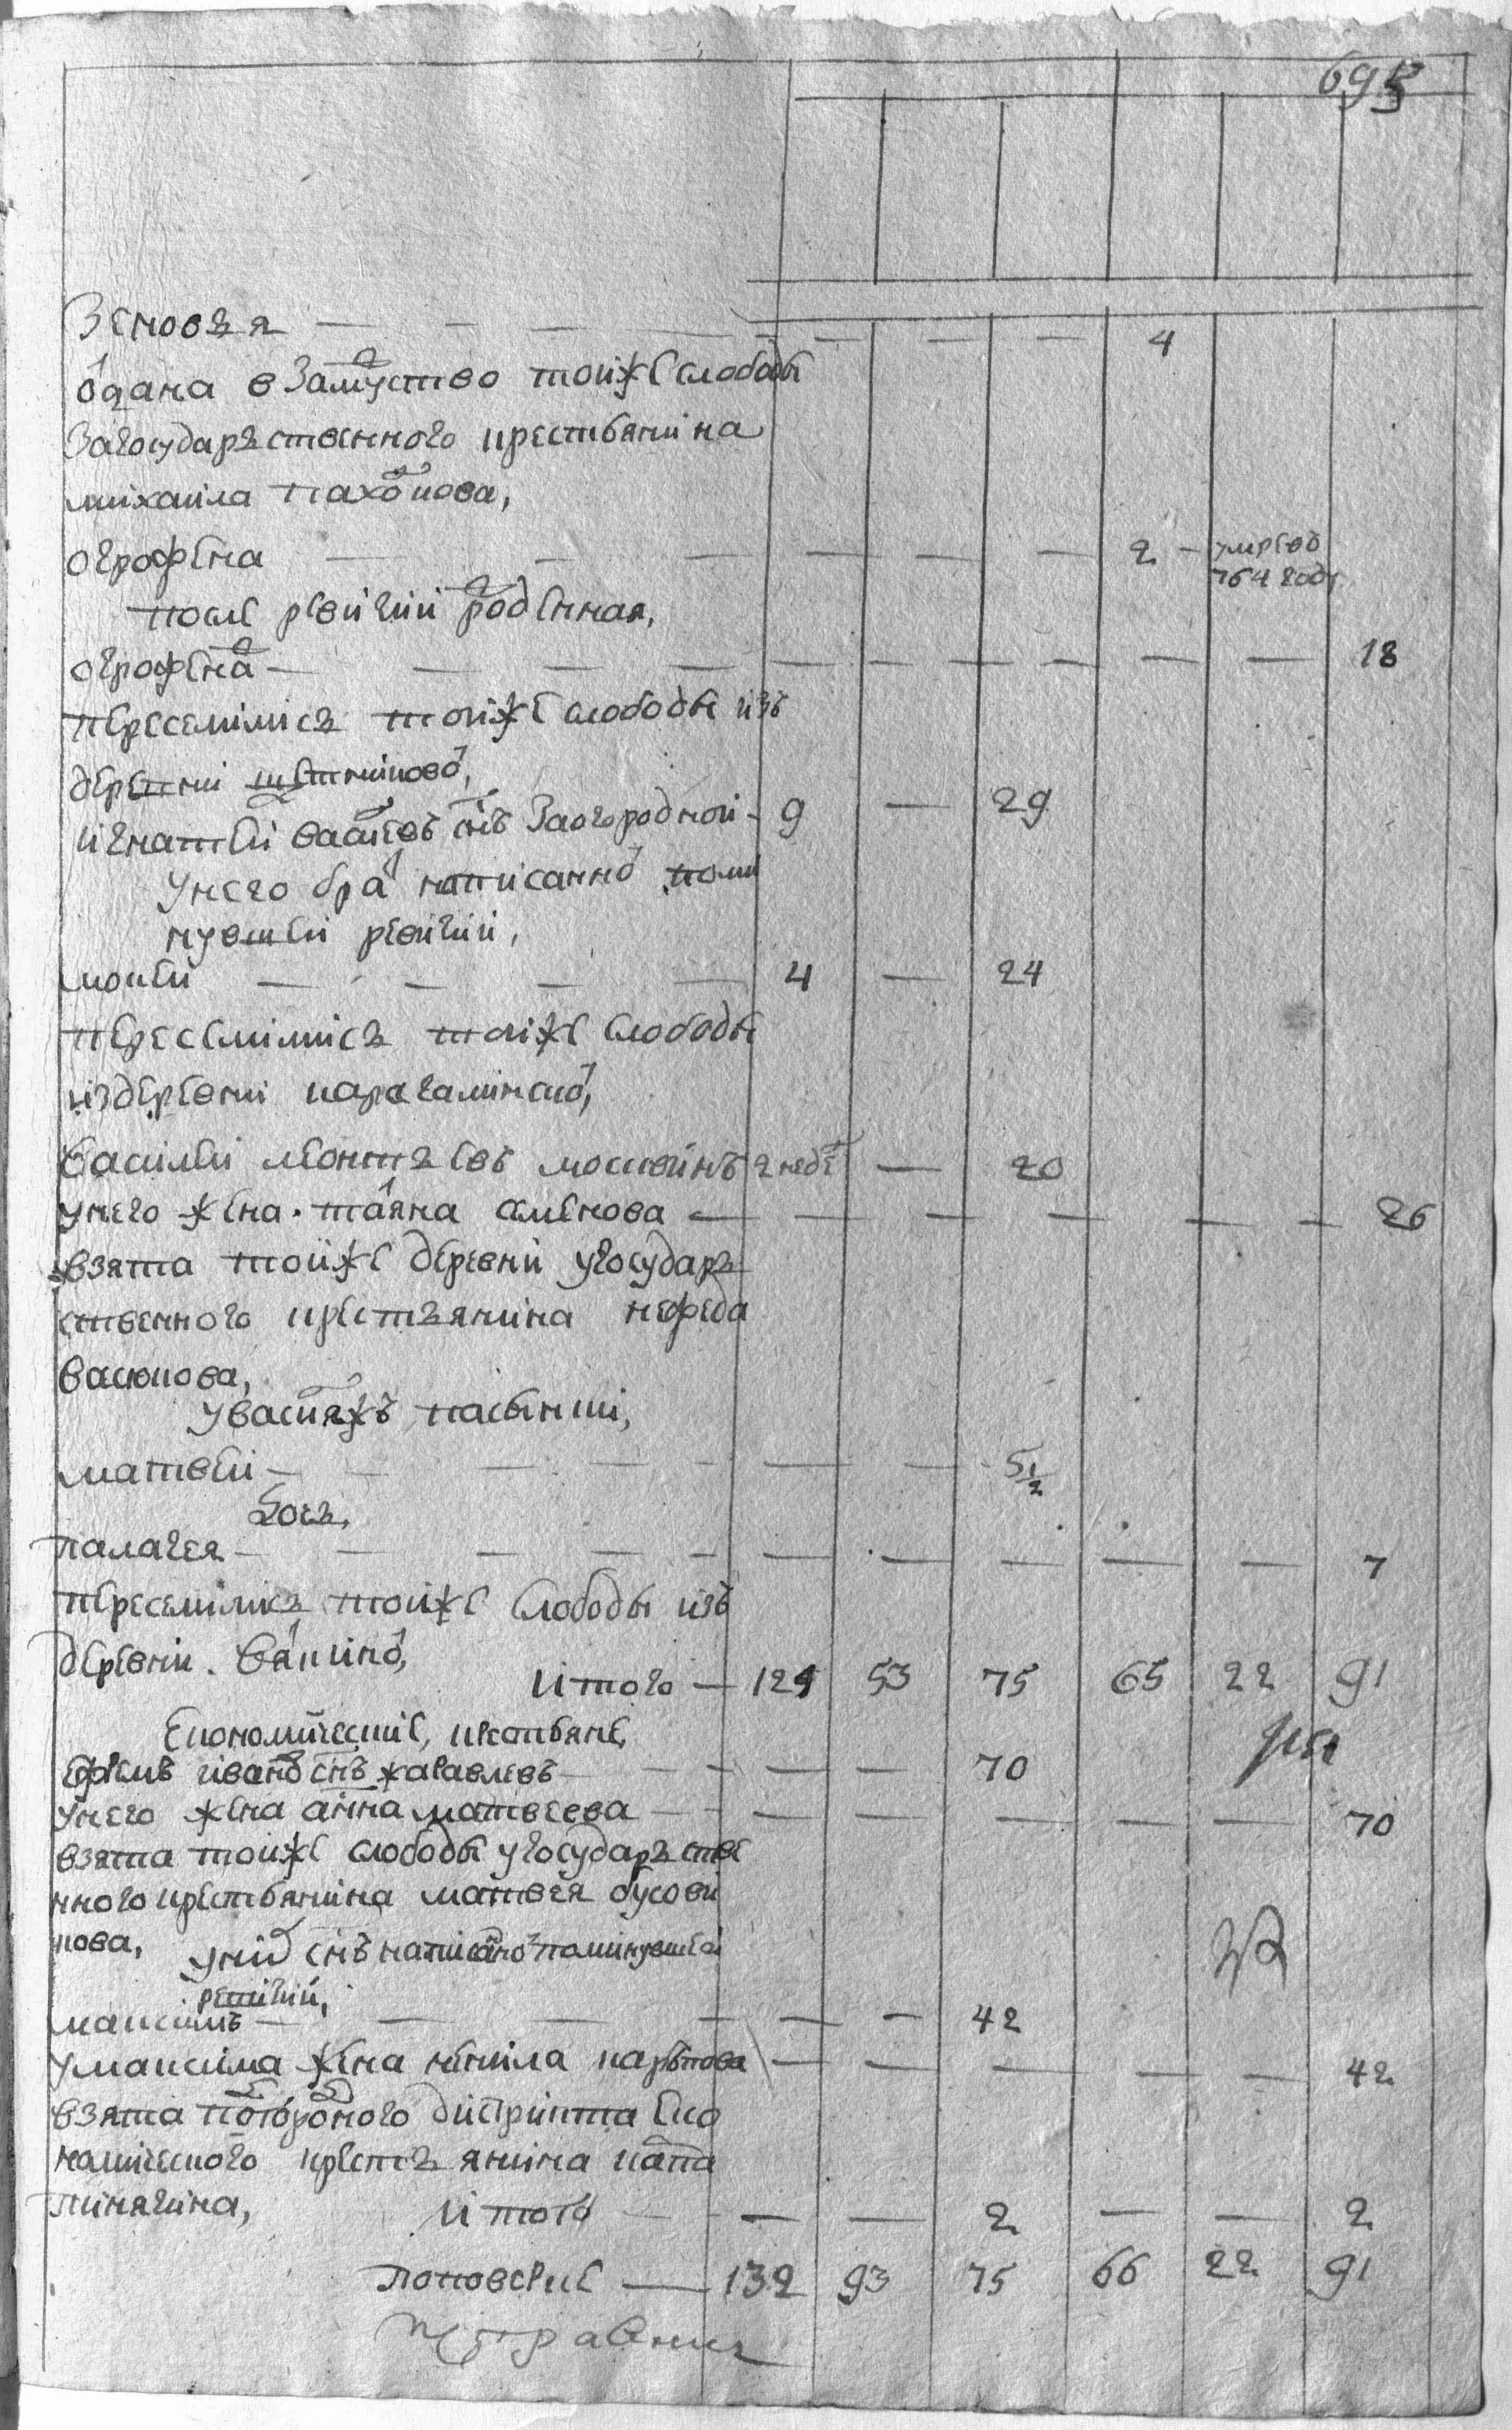 693
Зеновья — — — — — — 4
ѻдана взамуство тоиже слободы
загосударственного крестьянина
михаила пахомова,
огрофена — — — — — — 2 — умре въ
764 году
после ревизии рожденная,
огрофена — — — — — — — — 18
переселились тоиже слободы изъ
деревни
игнатеи васильевъ снъ Заогородной — 9 — 29
Унего братъ написанной поми
нувшеи ревизии,
мокеи — — — — 4 — 24
переселились тоиже слободы
издеревни карагалинской,
василеи леонтьевъ москвинъ 2 неде — 20
унего жена татьяна семенова — — — — — — 26
взята тоиже деревни угосудар
ственного крестьянина нефеда
васюкова,
увасильяжъ пасынки,
матвеи — — — — — — 5 1/2
дочь,
палагея — — — — — — — — — 7
переселились тоиже слободы изъ
деревни.
итого — 129 53 75 65 22 91
Економические, крестьяне,
Ефимъ ивановъ снъ жаравлевъ — — — — 70
унего жена анна матвеева — — — — — — — 70
взята тоиже слободы угосударстве
нного крестьянина матвея бусови
кова,
унихъ снъ написанной поминувшеи
ревизии,
максимъ — — — — — — 42
умаксима жена ненила карпова — — — — — 42
взята подгородного дистрикта Еко
номического крестьянина
пинягина,
итого — — — 2 — — 2
— 132 93 75 66 22 91